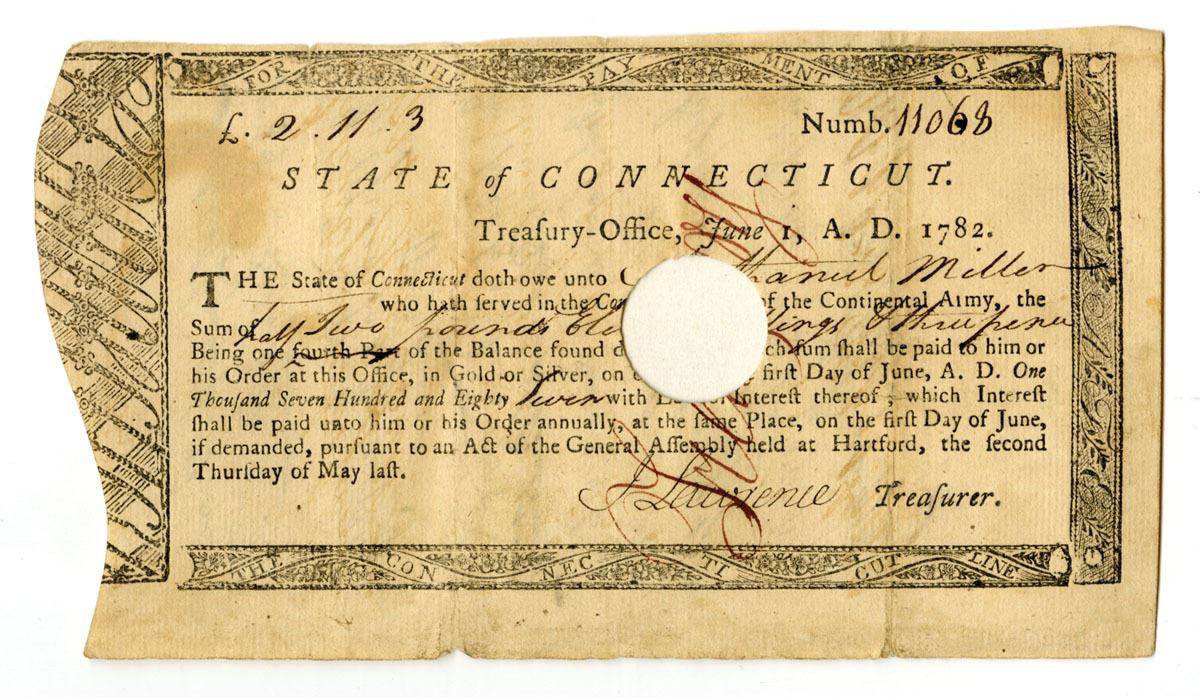 FOR THE PAY MENT OF
£. 2. 11. 3 Numb. 11068
STATE of CONNECTICUT.
Treaſury-Office, June 1, A. D. 1782.
THE State of Connecticut doth owe unto haniel Miller
who hath ſerved in the Con of the Continental Army, the
Sum of Two pounds Ele ings & three pence
half
Being one fourth Part of the Balance found d ch ſum ſhall be paid to him or
his Order at this Office, in Gold or Silver, on firſt Day of June, A. D. One
Thouſand Seven Hundred and Eighty Seven with Intereſt thereof, which Intereſt
ſhall be paid unto him or his Order annually, at the ſame Place, on the firſt Day of June,
if demanded, purſuant to an Act of the General Aſſembly held at Hartford, the ſecond
Thurſday of May laſt.
J Lawrence Treaſurer.
THE CON NEC TI CUT LINE